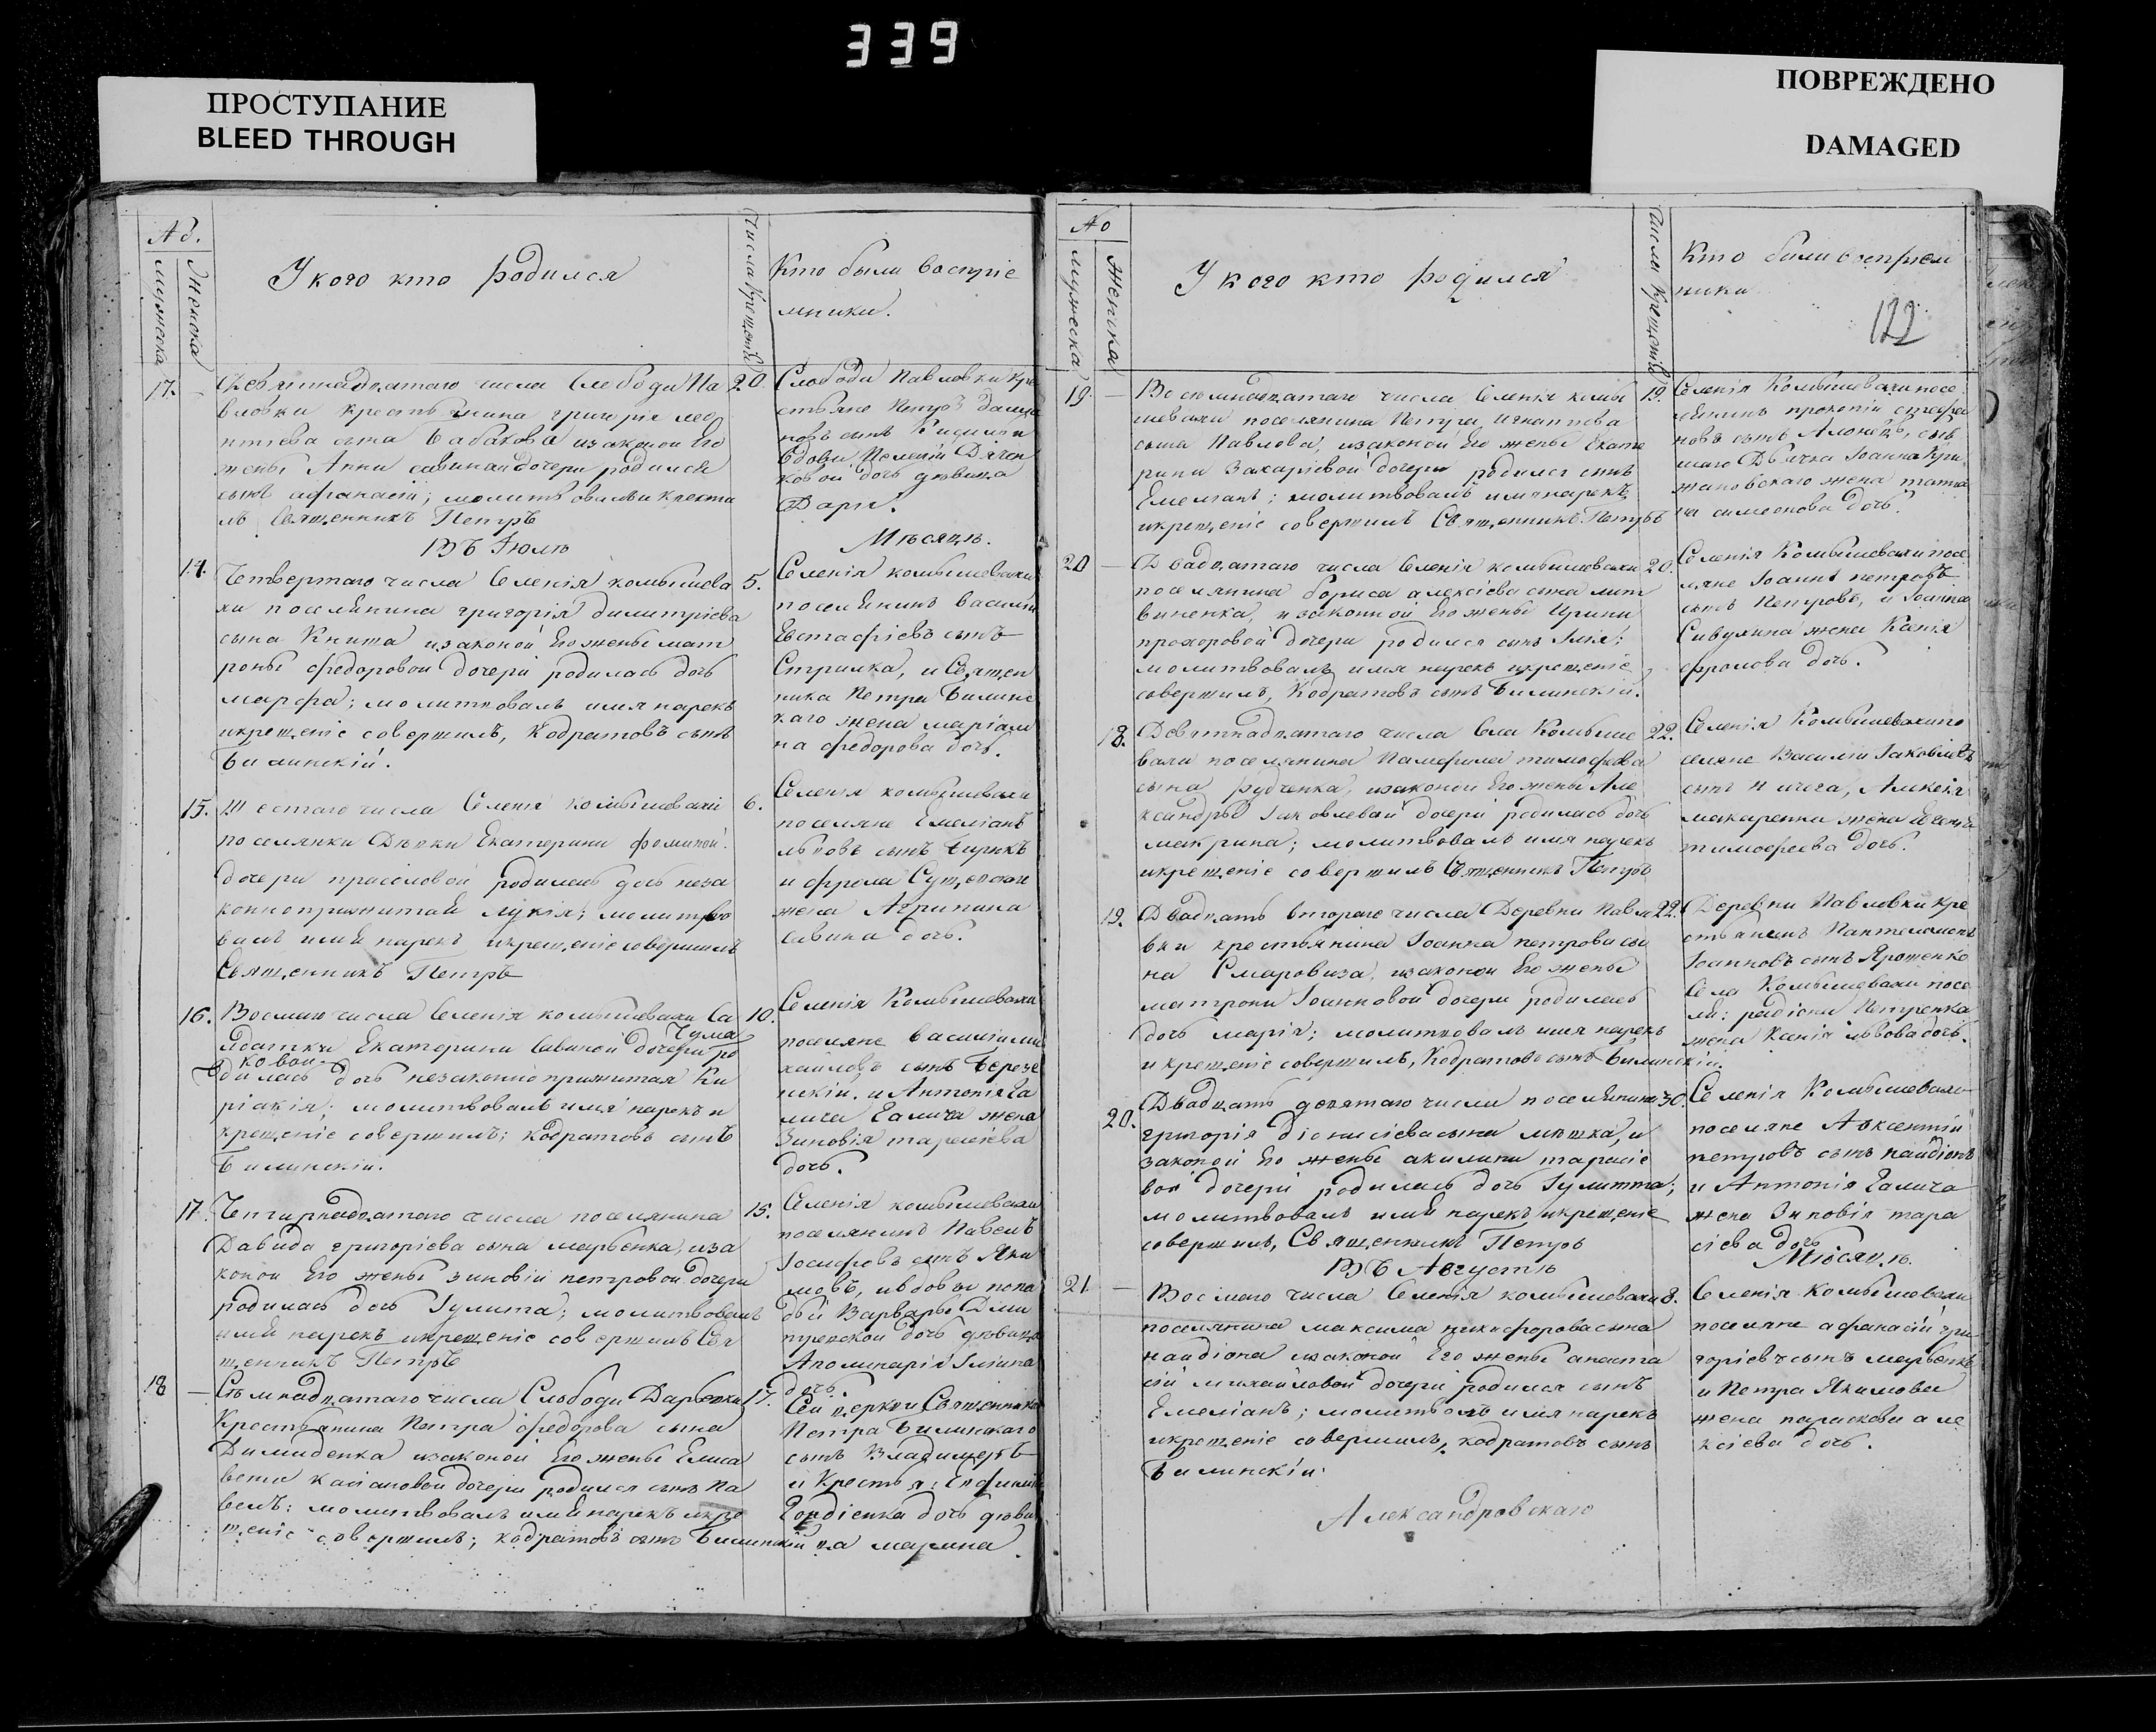 339
ПРОСТУПАНИЕ
BLEED THROUGH
ПОВРЕЖДЕНО
DAMAGED
№
мужеска
женска
У кого кто родился
Числа крещенія
Кто были воспріе
мники.
17.
Девятнадцатаго числа Слободи Па
вловки крестьянина григорія лео
нтіева сына Бабакова изаконой Его
жены Анни савиной дочери родился
сынъ афанасій; молитвовалъ и крести
лъ Священникъ Петръ
20.
Слободи Павловки кре
стьяне Петръ
новъ сынъ
вдови Пелагіи
ковой дочь девица
Дарія.
ВЪ Іюлѣ
Мѣсяцѣ.
14.
Четвертаго числа Селенія комышева
хи поселянина григорія димитріева
сына Книша изаконой Его жены мат
роны федоровой дочери родилась дочь
марфа; молитвовалъ имя нарекъ
икрещеніе совершилъ, Кодратовъ сынъ
Билинскій.
5.
Селенія комышевахи
поселянинъ василій
Евстафіевъ сынъ
Стрилка, и Священ
ника Петра Билинс
каго жена маріам
на федорова дочь.
15.
Шестаго числа Селенія комышевахи
поселянки Дѣвки Екатерини фоминой
дочери прасоловой родилась дочь неза
конноприжитая лукія; молитво
валъ имя нарекъ икрещеніе совершилъ
Священникъ Петръ
6.
Селенія комышевахи
поселяне Емеліанъ
львовъ сынъ Чирикъ
и
жена Агрипина
савина дочь.
16.
Восмаго числа Селенія комышевахи Са
лдатки Екатерини Савиной дочери Чума
ковой ро
дилась дочь незаконноприжитая Ки
ріакія; молитвовалъ имя нарекъ и
крещеніе совершилъ; кодратовъ сынъ
Билинскій.
10.
Селенія Комышевахи
поселяне василій ми
хайловъ сынъ Березе
нскій, и Антонія Га
лича Галича жена
Зиновія тарасіева
дочь.
17.
Четирнадцатаго числа поселянина
Давида григоріева сына марченка, иза
коной Его жены зиновіи петровой дочери
родилась дочь Іулита; молитвовалъ
имя нарекъ икрещеніе совершилъ Свя
щенникъ Петръ
15.
Селенія комышевахи
поселянинъ Павелъ
Іосифовъ сынъ Яки
мовъ, ивдовы попа
дьи Варвары Дми
тревской дочь девица
Аполинарія Іліина
дочь.
18
Съмнадцатаго числа Слободи Дарьевки
Крестьянина Петра федорова сына
Димиденка изаконой Его жены Елиса
вети касіановой дочери родился сынъ Па
велъ; молитвовалъ имя нарекъ икре
щеніе совершилъ; кодратовъ сынъ Билинскій
17.
Сей церкви Священника
Петра Билинскаго
сынъ Владимеръ
и Крестья:
Гордіенка дочь деви
ца марина
№
мужеска
женска
У кого кто родился
Числа крещенія
Кто были воспріем
ники
122
19.
Восемнадцатаго числа Селенія комы
шевахи поселянина Петра Игнатова
сына Павлова, изаконой Его жены Екате
рини Захаріевой дочери родился сынъ
Емеліанъ; молитвовалъ имя нарекъ
икрещеніе совершилъ Священникъ Петръ
19.
Селенія Комышевахи посе
лянинъ прокопій стефа
новъ сынъ
шаго Дьячка Іоанна Кри
жановскаго жена татіа
на симеонова дочь.
20
Двадцатаго числа Селенія комышевахи
поселянина бориса алексіева сына лит
виненка, изаконной Его жены Ирини
прохоровой дочери родился сынъ Ілія;
молитвовалъ имя нарекъ икрещеніе
совершилъ, Кодратовъ сынъ Билинскій.
20.
Селенія Комышевахи посе
ляне Іоаннъ петровъ
сынъ Петровъ, и Іоанна
жена Ксенія
дочь.
18.
Девятнадцатаго числа Села Комыше
вахи поселянина Памфила тимофеева
сына Рудченка, изаконой Его жены Але
ксандры Іаковлевой дочери родилась дочь
макрина; молитвовалъ имя нарекъ
икрещеніе совершилъ Священникъ Петръ
22.
Селенія Комышевахи по
селяне Василій Іаковлевъ
сынъ
макаренка жена Евгенія
тимофеева дочь.
19.
Двадцать втораго числа Деревни Павло
вки крестьянина Іоанна петрова сы
на Смаровиза, изаконой Его жены
матрони Іоанновой дочери родилась
дочь марія; молитвовалъ имя нарекъ
и крещеніе совершилъ, Кодратовъ сынъ Билинскій.
22.
Деревни Павловки кре
стьянинъ Пантелеимонъ
Іоанновъ сынъ Ярошенко
Села Комышевахи посе
ля: радіона Петренка
жена Ксенія львова дочь.
20.
Двадцать девятаго числа поселянина
григорія діонисіева сына мѣшка, и
законой Его жены акилини тарасіе
вой дочери родилась дочь Іулитта;
молитвовалъ имя нарекъ икрещеніе
совершилъ, Священникъ Петръ
30.
Селенія Комышевахи
поселяне Авксентій
петровъ сынъ найдіонъ
и Антонія Галича
жена Зиновія тара
сіева дочь.
ВЪ Августѣ
Мѣсяцѣ.
21
Восмаго числа Селенія комышевахи
поселянина максима никифорова сына
найдіона изаконой Его жены анаста
сіи михайловой дочери родился сынъ
Емеліанъ; молитвовалъ имя нарекъ
икрещеніе совершилъ, кодратовъ сынъ
Билинскій.
8.
Селенія Комышевахи
поселяне афанасій гри
горіевъ сынъ марченко
и Петра Якимова
жена параскова але
ксіева дочь.
Александровскаго